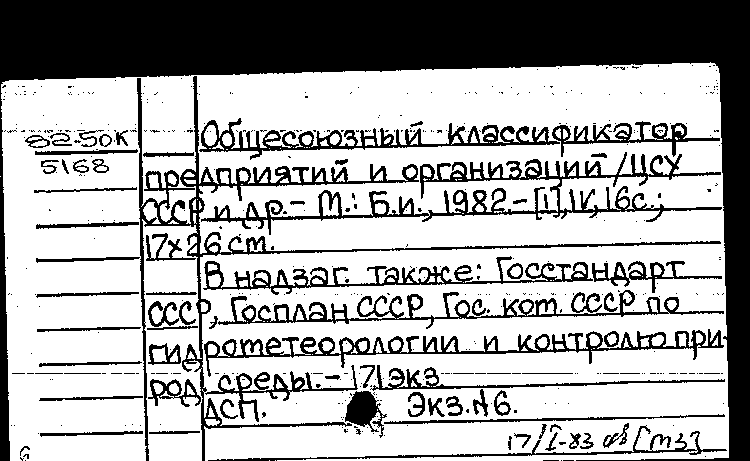 82-50к
5168
Общесоюзный классификатор
предприятий и организаций /ЦСУ
СССР и др.- М.: Б.и., 1982.-[1],IV,16с.;
17×26 см.
В надзаг. также: Госстандарт
СССР, Госплан СССР, Гос. ком. СССР по
гидрометеорологии и контролю при-
род. среды.- 171 экз.
ДСП. Экз.№6.
17/I-83 [МЗ]